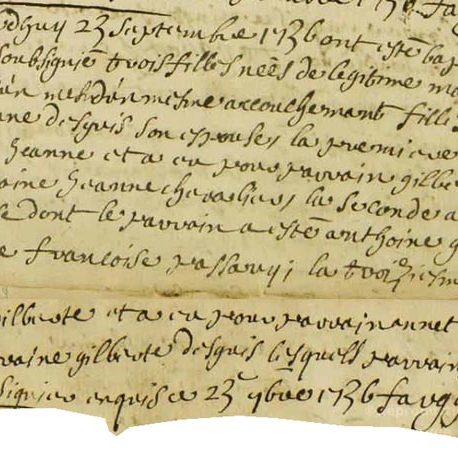 aujourdhuy 23 septembre 1736 ont esté bap
soubsigné trois filles nées de legitime ma
d'un mesme accouchement filles
anne desguis son espouse, la premiere
jeanne et a eu pour parrain gilbe
raine jeanne chevalier, la seconde a
dont le parrain a esté anthoine g
e francoise passavy; la troiziesme
gilberte et a eu pour parrain annet
raine gilberte desguis lesquels parrain
signer enquis ce 23e 7bre 1736 faug